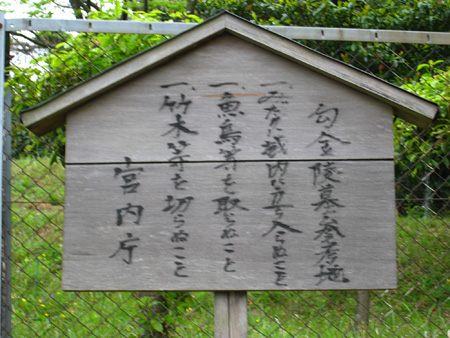 勾金陵墓参考地
一、みだりに域内に立ち入らぬこと
一、魚鳥等を取らぬこと
一、竹木等を切らぬこと
宮内庁